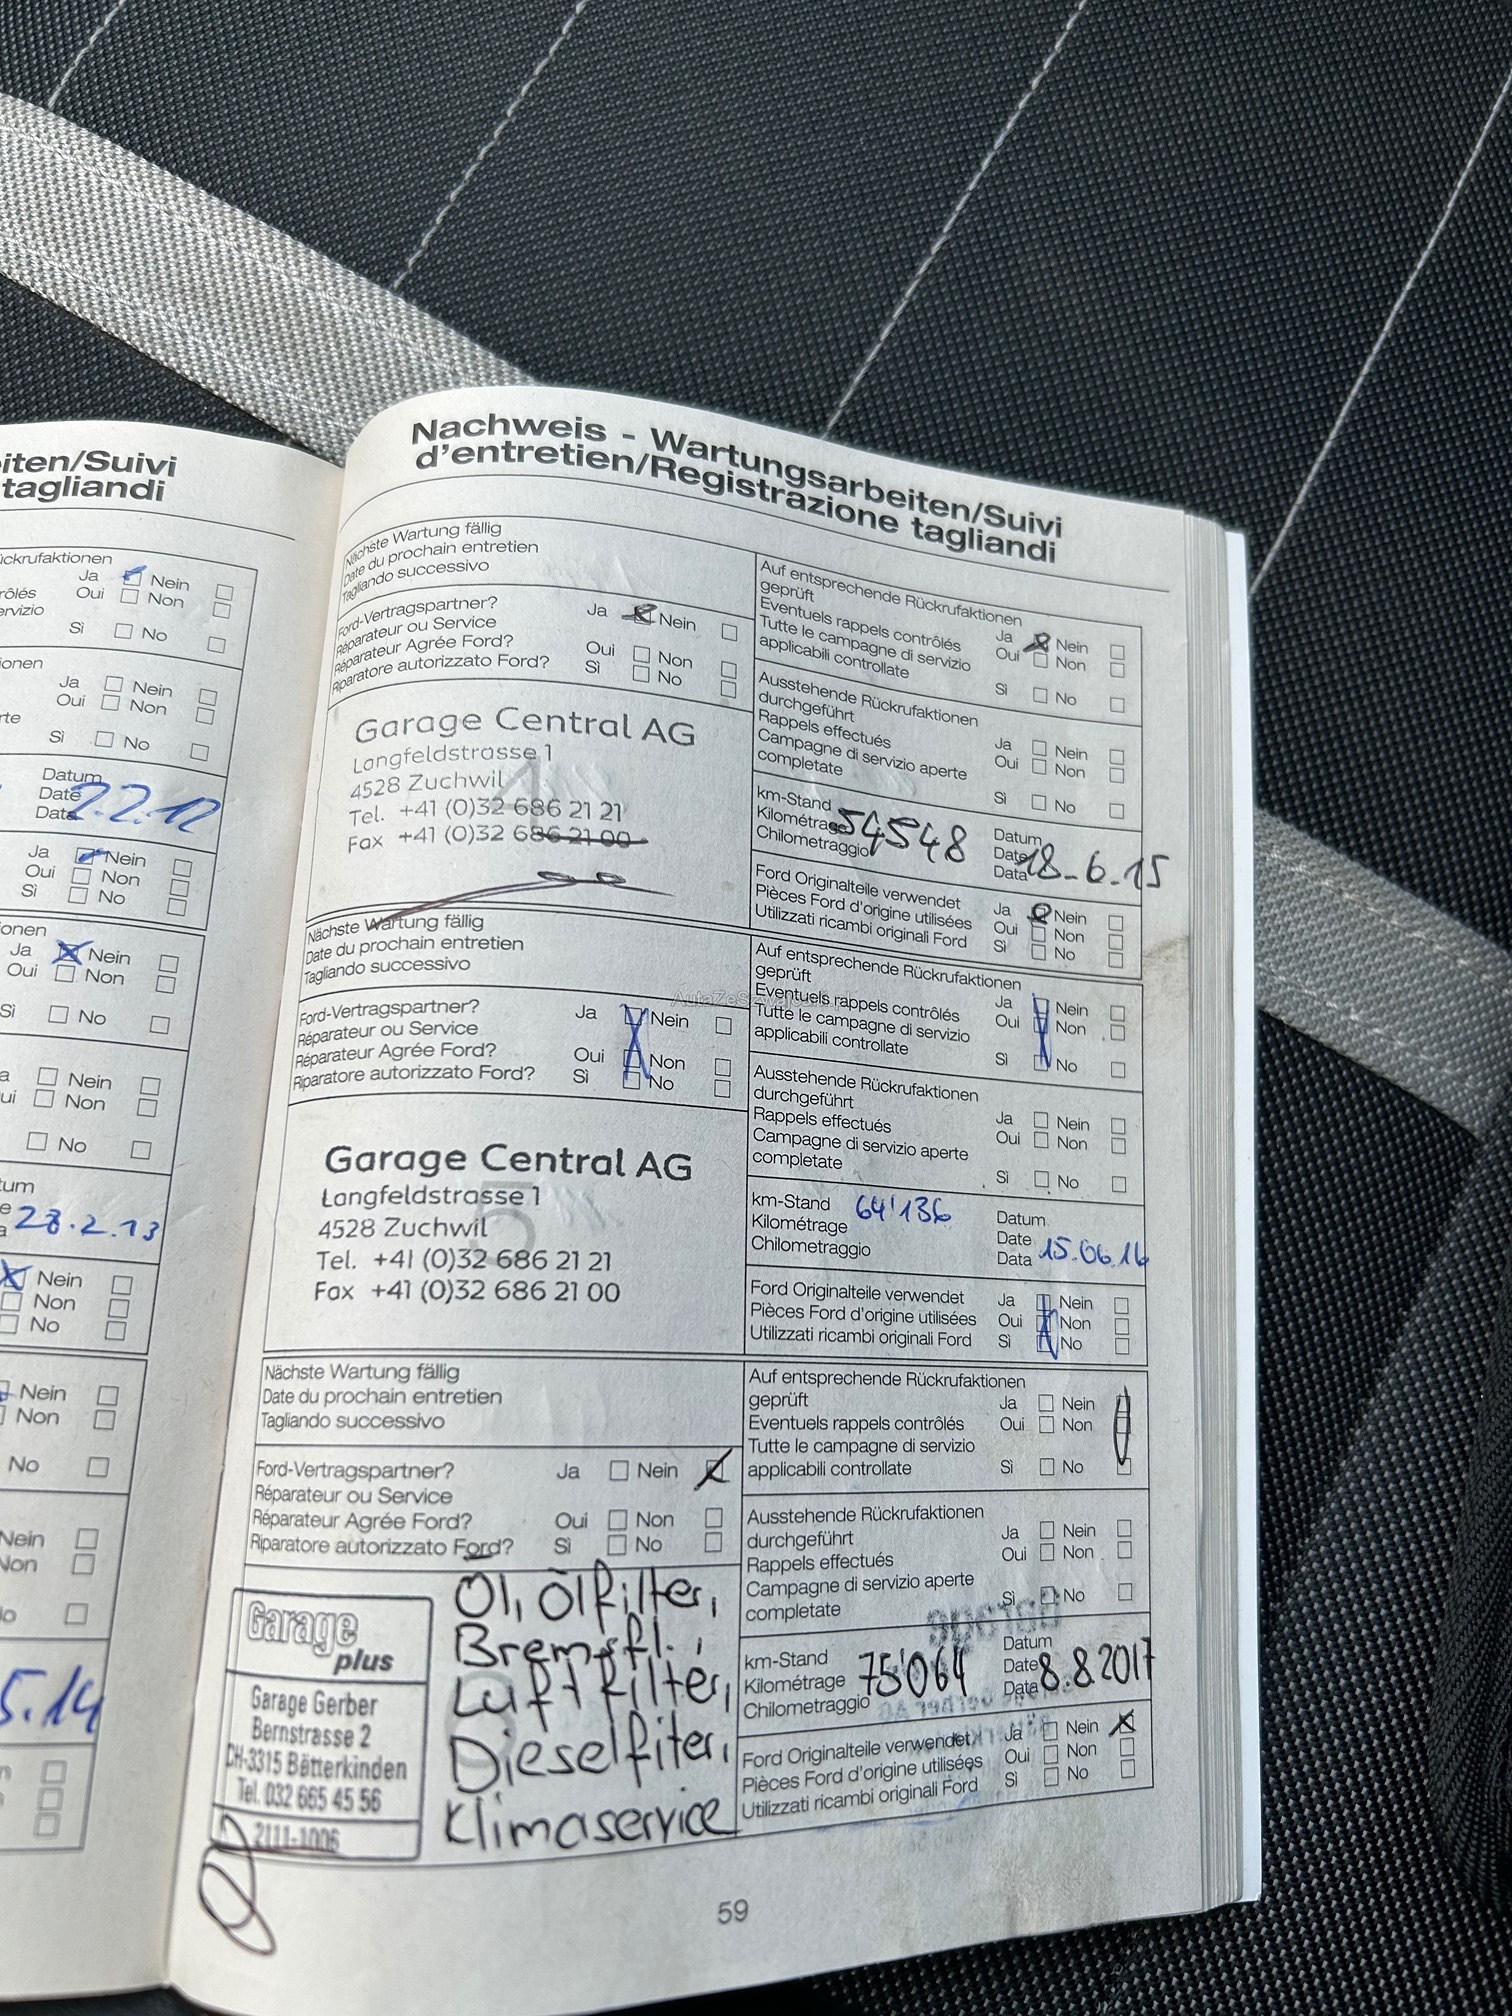 iten/Suivi
tagliandi
ückrufaktionen
Ja Nein
rôlés Oui Non
ervizio
Sì No
ionen
Ja Nein
Oui Non
rte
Sì No
Datum
Date
Data 2.2.12
Ja Nein
Oui Non
Sì No
ionen
Ja Nein
Oui Non
Sì No
a Nein
ui Non
No
tum
e
a 28.2.13
Nein
Non
No
Nein
Non
No
Nein
Non
lo
5.14
n
Nachweis - Wartungsarbeiten/Suivi
d'entretien/Registrazione tagliandi
Nächste Wartung fällig
Date du prochain entretien
Tagliando successivo
Ford-Vertragspartner? Ja Nein
Réparateur ou Service
Réparateur Agrée Ford? Oui Non
Riparatore autorizzato Ford? Sì No
4
Garage Central AG
Langfeldstrasse 1
4528 Zuchwil
Tel. +41 (0)32 686 21 21
Fax +41 (0)32 686 21 00
Auf entsprechende Rückrufaktionen
geprüft Ja Nein
Eventuels rappels contrôlés Oui Non
Tutte le campagne di servizio
applicabili controllate Sì No
Ausstehende Rückrufaktionen
durchgeführt Ja Nein
Rappels effectués Oui Non
Campagne di servizio aperte
completate Sì No
km-Stand Datum
Kilométrage 54548 Date 18.6.15
Chilometraggio Data
Ford Originalteile verwendet Ja Nein
Pièces Ford d'origine utilisées Oui Non
Utilizzati ricambi originali Ford Sì No
Nächste Wartung fällig
Date du prochain entretien
Tagliando successivo
Ford-Vertragspartner? Ja Nein
Réparateur ou Service
Réparateur Agrée Ford? Oui Non
Riparatore autorizzato Ford? Sì No
5
Garage Central AG
Langfeldstrasse 1
4528 Zuchwil
Tel. +41 (0)32 686 21 21
Fax +41 (0)32 686 21 00
Auf entsprechende Rückrufaktionen
geprüft Ja Nein
Eventuels rappels contrôlés Oui Non
Tutte le campagne di servizio
applicabili controllate Sì No
Ausstehende Rückrufaktionen
durchgeführt Ja Nein
Rappels effectués Oui Non
Campagne di servizio aperte
completate Sì No
km-Stand 64'136 Datum
Kilométrage Date
Chilometraggio Data 15.06.16
Ford Originalteile verwendet Ja Nein
Pièces Ford d'origine utilisées Oui Non
Utilizzati ricambi originali Ford Sì No
Nächste Wartung fällig
Date du prochain entretien
Tagliando successivo
Ford-Vertragspartner? Ja Nein
Réparateur ou Service
Réparateur Agrée Ford? Oui Non
Riparatore autorizzato Ford? Sì No
Garage
plus
Garage Gerber
Bernstrasse 2
CH-3315 Bätterkinden
Tel. 032 665 45 56
2111-1006
Öl, Ölfilter,
Bremsfl.,
Luftfilter,
Dieselfiter,
Klimaservice
Auf entsprechende Rückrufaktionen
geprüft Ja Nein
Eventuels rappels contrôlés Oui Non
Tutte le campagne di servizio
applicabili controllate Sì No
Ausstehende Rückrufaktionen
durchgeführt Ja Nein
Rappels effectués Oui Non
Campagne di servizio aperte
completate Sì No
km-Stand Datum
Kilométrage 75'064 Date 8.8.2017
Chilometraggio Data
Ford Originalteile verwendet Ja Nein
Pièces Ford d'origine utilisées Oui Non
Utilizzati ricambi originali Ford Sì No
59